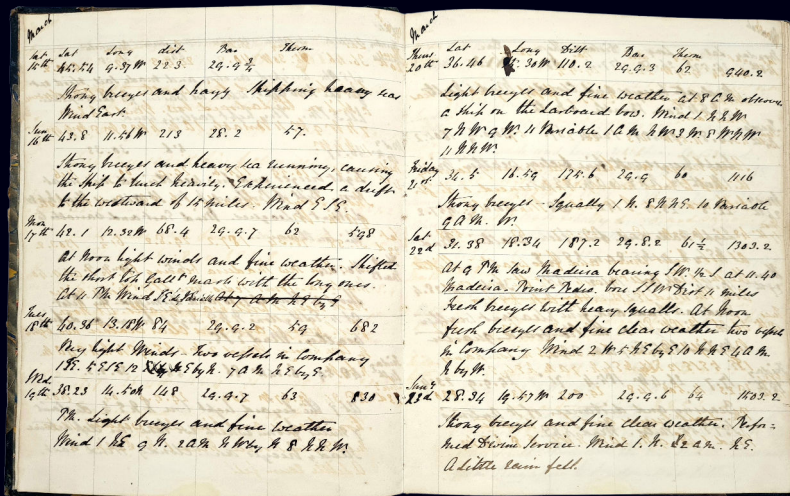 March
Sat Sat Long dist Bar Therm
15th 45.54 9.37 W 223 29.9 3/4
Strong breezes and hazy Shipping heavy seas
Wind East.
Sun 16th 43.8 11.56 W 213 28.2 57.
Strong breezes and heavy sea running, causing
the Ship to lurch heavily. Experienced a drift
to the westward of 15 miles. Wind E S E.
Mon 17th 42.1 12.32 W 68.4 29.9.7 62 598
At Noon light winds and fine weather. Shifted
the short top Gallt masts with the long ones.
At 4 PM Wind
Tues 18th 40.36 13.18 W 84 29.9.2 59 682
Very light Winds. Two vessels in Company
7 A M N E by E.
Wed 19th 38.23 14.50 W 148 29.9.7 63 830
PM. Light breezes and fine weather
Wind 1 N E 9 N. 2 AM N W by N 8 N N W.
March
Lat Long Dist Bar Therm
Thurs 20th 36.46 30 W 110.2 29.9.3 62 940.2
Light breezes and fine weather at 8 A M observe
a ship on the Larboard bow. Wind 1 N N W
7 N W 9 W. 11 Variable 1 A M N W 3 W 8 W N W
11 N N W.
Friday 21st 34.5 16.59 175.6 29.9 60 1116
Strong breezes. Squally 1 N. 8 N N E. 10 Variable
9 A M. W.
Sat 22d 31.38 18.34 187.2 29.8.2 61 1/2 1303.2
At 9 PM saw Madeira bearing S W 1/2 S. at 11.40
Madeira. Point Pedro. bore S S W Dist 11 miles
Fresh breezes with heavy squalls. At Noon
fresh breezes and fine clear weather two vessels
in Company Wind 2 W 5 N E by E 10 N N E 4 A M
N by W.
Sung 23d 28.34 19.57 W 200 29.9.6 64 1503.2
Strong breezes and fine clear weather. Perfor-
med Divine Service. Wind 1. N. 2 am. N E.
A little rain fell.